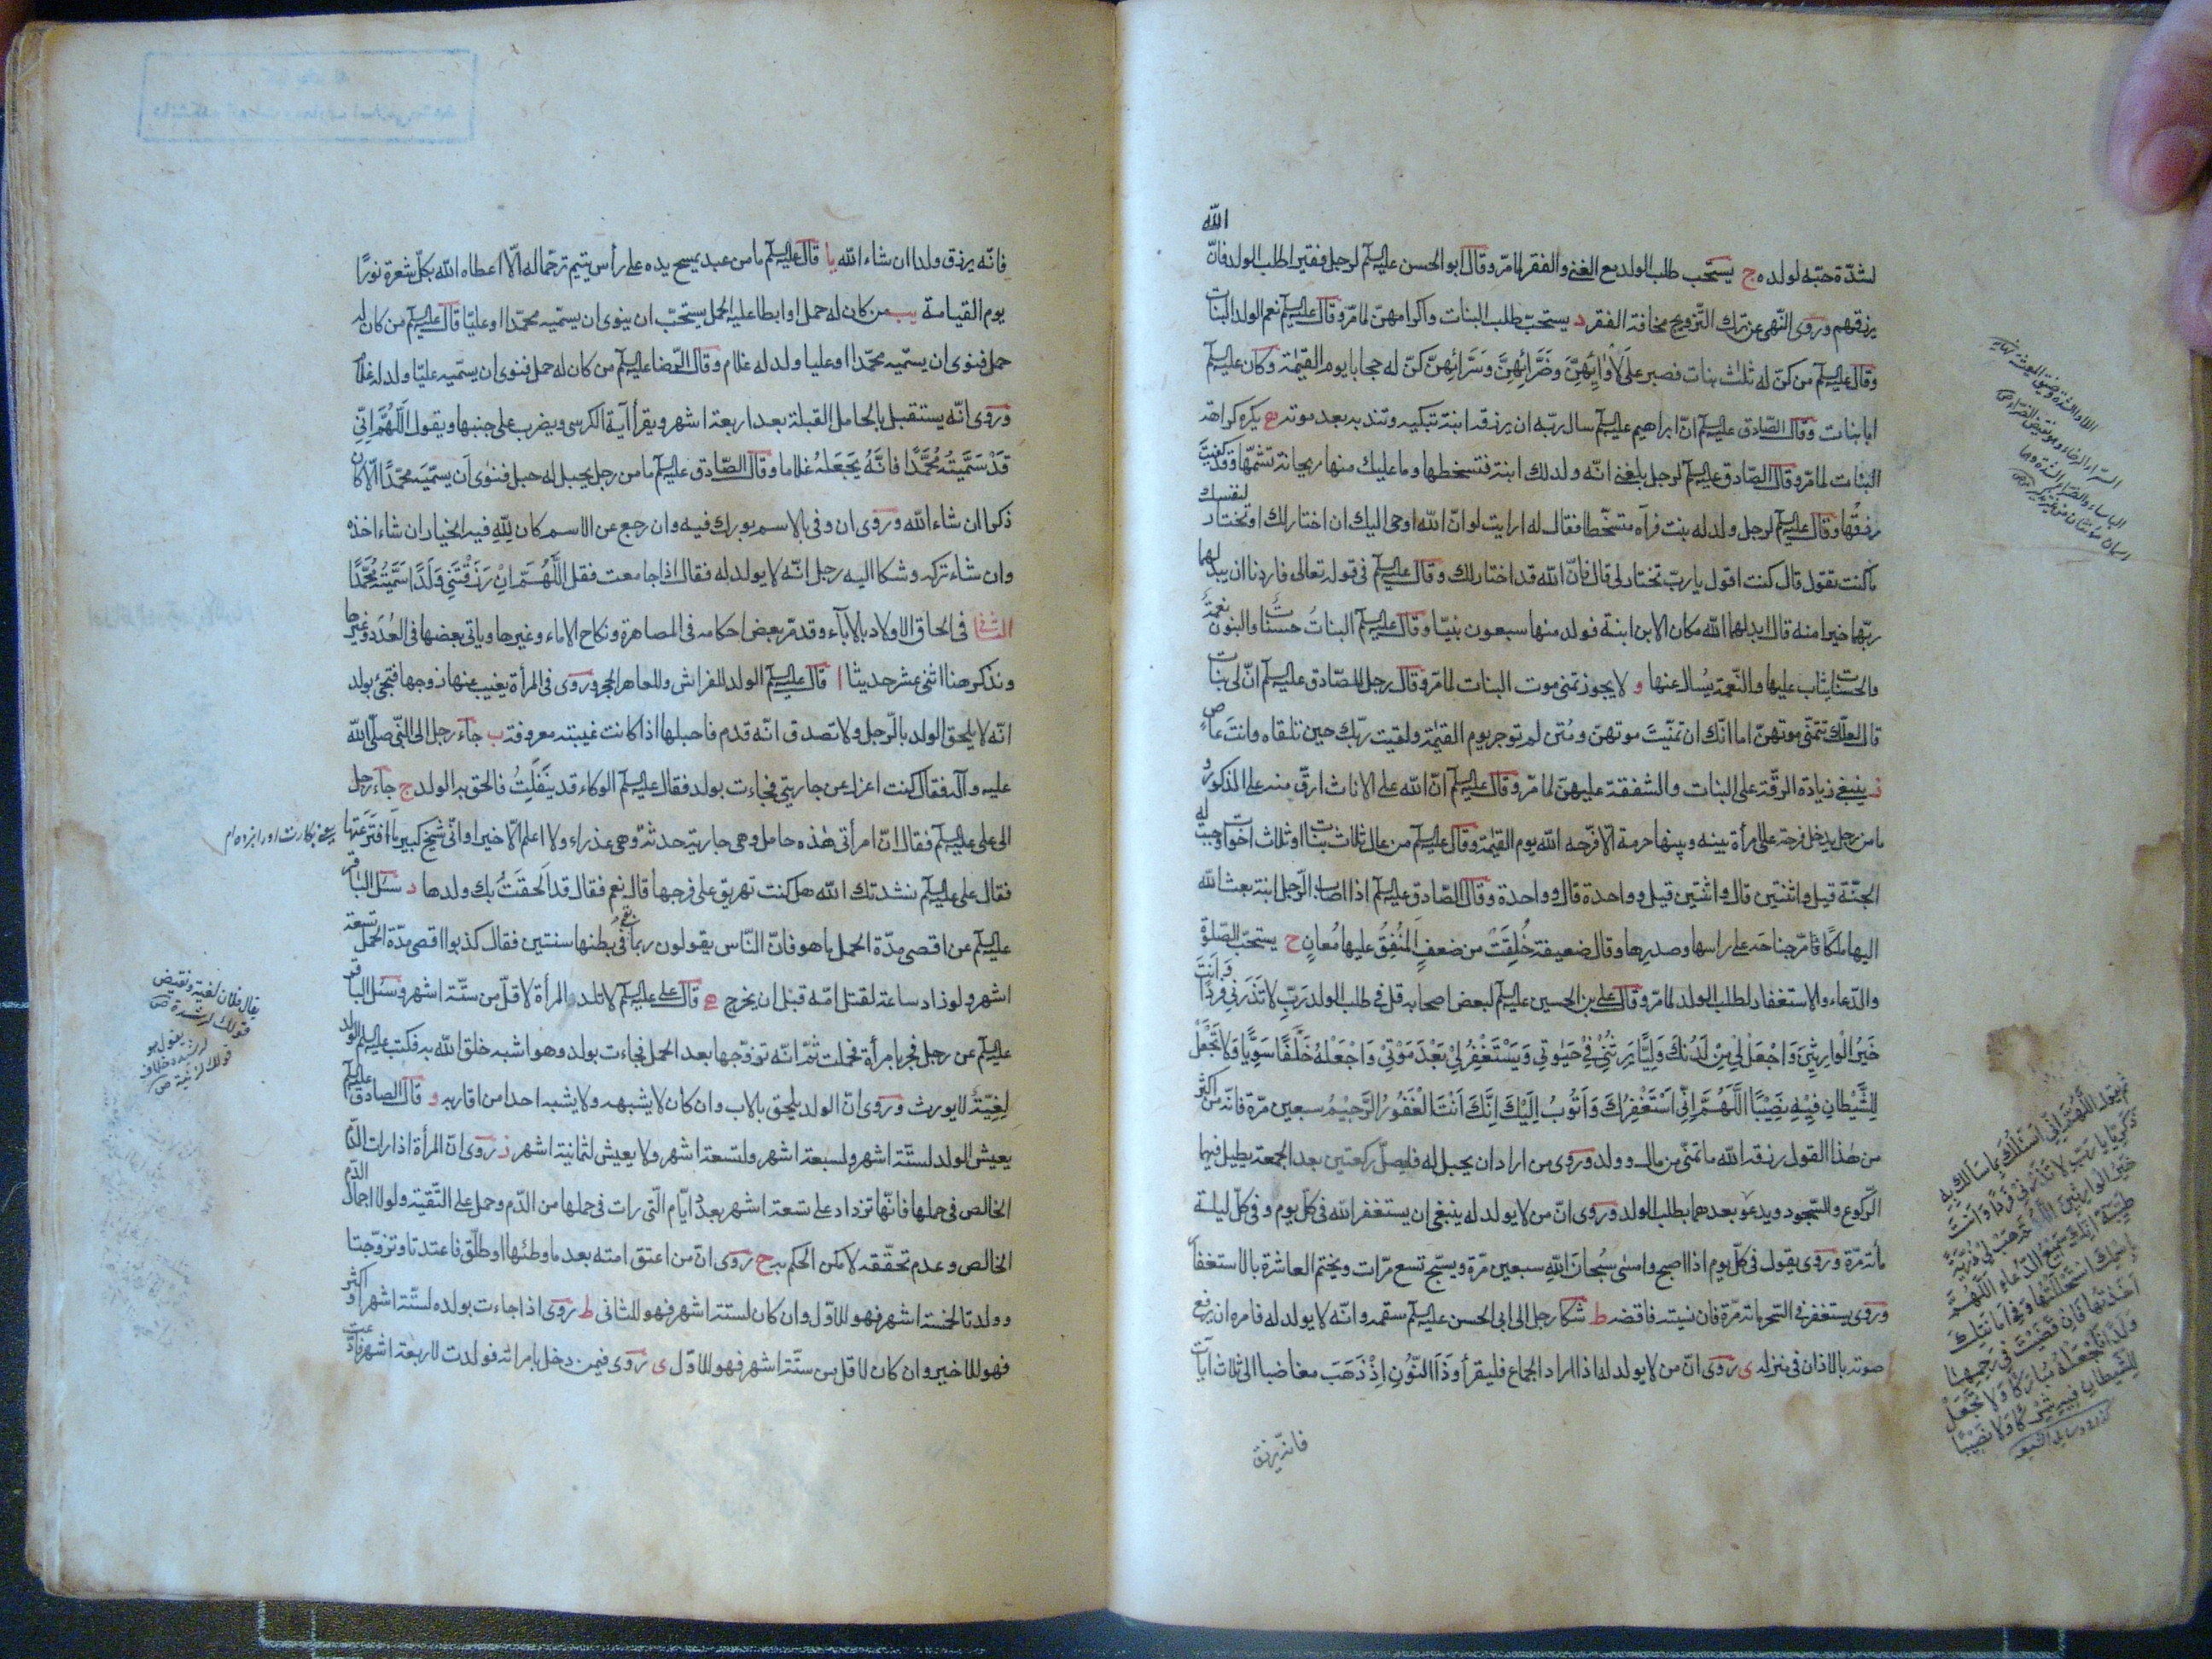 الله
لشدّة حبّه لولده ج يستحب طلب الولد مع الغنى والفقر لما مرّ وقال ابو الحسن عليه السلم لرجل فقير اطلب الولد فانّ
يرزقهم وروى النّهى عن ترك التّزويج مخافة الفقر د يستحبّ طلب البنات واكرامهنّ لما مرّ وقال عليه السلم نعم الولد البنات
وقال عليه السلم من كنّ له ثلث بنات فصبر على لَأْوَائِهِنَّ وَضَرَّائِهِنَّ وَسَرَّائِهِنَّ كنّ له حجابا يوم القيٰمة وكان عليه السلم
ابا بنات وقال الصّادق عليه السلم انّ ابراهيم عليه السلم سال ربّه ان يرزقه ابنة تبكيه وتندبه بعد موته ه يكره كراهة
البنات لما مرّ وقال الصّادق عليه السلم لرجل بلغنى انّه ولد لك ابنة فتسخطها وما عليك منها ريحانة تشمّها وقد كفيتَ
رزقها وقال عليه السلم لرجل ولد له بنت فرآه متسخّطا فقال له ارايت لو انّ الله اوحى اليك ان اختار لك او تختار لنفسك
ما كنت تقول قال كنت اقول يا ربّ تختار لى قال فانّ الله قد اختار لك وقال عليه السلم فى قوله تعالى فاردنا ان يبدلهما
ربّهما خيرا منه قال ابدلهما الله مكان الابن ابنة فولد منها سبعون نبيّا وقال عليه السلم البناتُ حسنات والبنون نعمة
والحسنات يثاب عليها والنّعمة يُسال عنها و لا يجوز تمنى موت البنات لما مرّ وقال رجل للصّادق عليه السلم انّ لى بنات
قال لعلّك تتمنّى موتهنّ اما انّك ان تمنّيتَ موتهنّ ومُتن لم توجر يوم القيٰمة ولقيت ربّك حين تلقاه وانتَ عاصٍ
ز ينبغى زيادة الرقّة على البنات والشفقة عليهنّ لما مرّ وقال عليه السلم انّ الله على الاناث ارقّ منه على الذكور و
ما من رجل يدخل فرحة على امرأة بينه وبينها حرمة الّا فرّحه الله يوم القيٰمة وقال عليه السلم من عال ثلاث بنات او ثلاث اخوات وجبت له
الجنّة قيل واثنتين قال واثنتين قيل وواحدة قال وواحدة وقال الصّادق عليه السلم اذا اصاب الرّجل ابنة بعث الله
اليها ملكًا فامرّ جناحه على راسها وصدرها وقال ضعيفة خُلِقَتْ من ضعفٍ المُنْفِقُ عليها مُعانٍ ح يستحبّ الصّلوة
والدّعاء والاستغفار لطلب الولد لما مرّ وقال على بن الحسين عليه السلم لبعض اصحابه قل فى طلب الولد رَبِّ لا تَذَرْنِى فَرْدًا وَ اَنتَ
خَيْرُ الْوارِثِينَ وَاجْعَلْ لِىْ مِنْ لَدُنْكَ وَلِيًّا يَرِثُنِىْ فِىْ حَيٰوتِى وَيَسْتَغْفِرُ لِىْ بَعْدَ مَوْتِىْ وَاجْعَلْهُ خَلَفًا سَوِيًّا وَلَا تَجْعَلْ
لِلشَّيْطَانِ فِيْهِ نَصِيْبًا اَللّٰهُمَّ اِنِّى اَسْتَغْفِرُكَ وَاَتُوْبُ اِلَيْكَ اِنَّكَ اَنْتَ الْغَفُورُ الرَّحِيْمُ سبعين مرّة فانّه من اكثر
من هٰذا القول رزقه الله ما تمنّى من مال وولد وروى من اراد ان يحبل له فليصلّ ركعتين بعد الجمعة يطيل فيهما
الرّكوع والسّجود ويدعو بعدهما بطلب الولد وروى انّ من لا يولد له ينبغى ان يستغفر الله فى كلّ يوم وفى كلّ ليلة
مأته مرّة وروى يقول فى كلّ يوم اذا اصبح وامسٰى سُبحانَ اللهِ سبعين مرّة ويسبّح تسع مرّات ويختم العاشرة بالاستغفار
وروى يستغفر فى السّحر ماته مرّة فان نسيته فاقضه ط شكا رجل الى ابى الحسن عليه السلم سقمه وانّه لا يولد له فامره ان يرفع
صوته بالاذان فى منزله ى روى انّ من لا يولد له اذا اراد الجماع فليقرأ وَذَا النُّوْنِ اِذْ ذَهَبَ مغاضبا الى ثلاث ايات
فانّه يرزق
ثم يقول اَللّٰهُمَّ اِنِّى اَسْئَلُكَ بِمَا سَأَلَكَ بِهِ
زَكَرِيَّا يا رَبِّ لا تَذَرْنِى فَرْدًا وَاَنْتَ
خَيْرُ الْوارِثِينَ اَللّٰهُمَّ هَبْ لِى ذُرِّيَّةً
طَيِّبَةً اِنَّكَ سَمِيعُ الدُّعاءِ اَللّٰهُمَّ
بِاسْمِكَ اسْتَحْلَلْتُها وَفِى اَمانَتِكَ
اَخَذْتُها فَاِنْ قَضَيْتَ فِى رَحِمِها
وَلَدًا فَاجْعَلْهُ مُبارَكًا وَلا تَجْعَلْ
لِلشَّيْطانِ فِيهِ شِرْكًا وَلا نَصِيْبًا
فانّه يرزق ولدا ان شاء الله يا قال عليه السلم ما من عبد يمسح يده على رأس يتيم ترحّما له الّا اعطاه الله بكلّ شعرة نورًا
يوم القيامة يب من كان له حمل او ابطا عليه الحمل يستحبّ ان ينوى ان يسمّيه محمّدا او عليّا قال عليه السلم من كان له
حمل فنوى ان يسمّيه محمّدا او عليا ولد له غلام وقال الرّضا عليه السلم من كان له حمل فنوى ان يسمّيه عليّا ولد له غلام
وروى انّه يستقبل بالحامل القبلة بعد اربعة اشهر ويقرأ آية الكرسى ويضرب على جنبها ويقول اَللّٰهُمَّ اِنِّى
قَدْ سَمَّيْتُهُ مُحَمَّدًا فَانَّهُ يَجْعَلهُ غلاما وقال الصّادق عليه السلم ما من رجل يحبل له حبل فنوى اَن يسمّيَه محمّدًا الّا كان
ذكرا ان شاء الله وروى ان وفى بالاسم بورك فيه وان رجع عن الاسم كان لِلّٰهِ فيه الخيار ان شاء اخذه
وان شاء تركه وشكا اليه رجل انّه لا يولد له فقال اذا جامعت فقل اللّٰهُمَّ اِنْ رَزَقْتَنِى وَلَدًا سَمَّيْتُهُ مُحَمَّدًا
فى الحاق الاولاد بالاٰباء وقد مرّ بعض احكامه فى المصاهرة ونكاح الاماء وغيرها وياتى بعضها فى العُدَد وغيرها
ونذكر هنا اثنى عشر حديثا ا قال عليه السلم الولد للفراش وللعاهر الحجر وروى فى المرأة يغيب عنها زوجها فتجئ بولد
انّه لا يلحق الولد بالرّجل ولا تصدق انّه قدم فاحبلها اذا كانت غيبته معروفة ب جاء رجل الى النّبى صلّى الله
عليه وآله فقال كنت اعزل عن جارية لى فجاءت بولد فقال عليه السلم الوكاء قد ينفَلِتُ فالحق به الولد ج جاء رجل
الى على عليه السلم فقال انّ امرأتى هٰذه حامل وهى جارية حدثة وهى عذراء ولا اعلم الّا خيرا وانّى شيخ كبير ما افْتَرَعْتها
فقال على عليه السلم نشدتك الله هل كنت تهريق على فرجها قال نعم فقال قد اَلحقتُ بك ولدها د سئل الباقر
عليه السلم عن اقصى مدّة الحمل ما هو فانّ النّاس يقولون ربما بقى فى بطنها سنتين فقال كذبوا اقصى مدّة الحمل تسعة
اشهر ولو زاد ساعة لقتل امّه قبل ان يخرج ه قال على عليه السلم لا تلد المرأة لاقلّ من ستّة اشهر وسئل الباقر
عليه السلم عن رجل فجر بامرأة فحملت ثمّ انّه تزوّجها بعد الحمل فجاءت بولد وهو اشبه خلق الله به فكتب عليه السلم الولد
لِغِيّةٍ لا يورث وروى انّ الولد يلحق بالاب وان كان لا يشبهه ولا يشبه احدا من اقاربه و قال الصادق عليه السلم
يعيش الولد لستّة اشهر ولسبعة اشهر ولتسعة اشهر ولا يعيش لثمانية اشهر ز روى انّ المرأة اذا رات الدّم
الخالص فى حملها فانّها تزداد على تسعة اشهر بعدد ايّام الّتى رات فى حملها من الدّم وحمل على التّقية ولولا اجمال الدّم
الخالص وعدم تحقّقه لامكن الحكم به ح روى انّ من اعتق امته بعد ما وطئها او طلّق فاعتدتا وتزوّجتا
وولدتا لخمسة اشهر فهو للاوّل وان كان لستة اشهر فهو للثانى ط روى اذا جاءت بولده لستّة اشهر او اكثر
فهو للاخير وان كان لاقل من ستّة اشهر فهو للاوّل ى روى فيمن دخل بامراته فولدت لاربعة اشهر فادّعت
يعنى بكارت او را نبرده ام